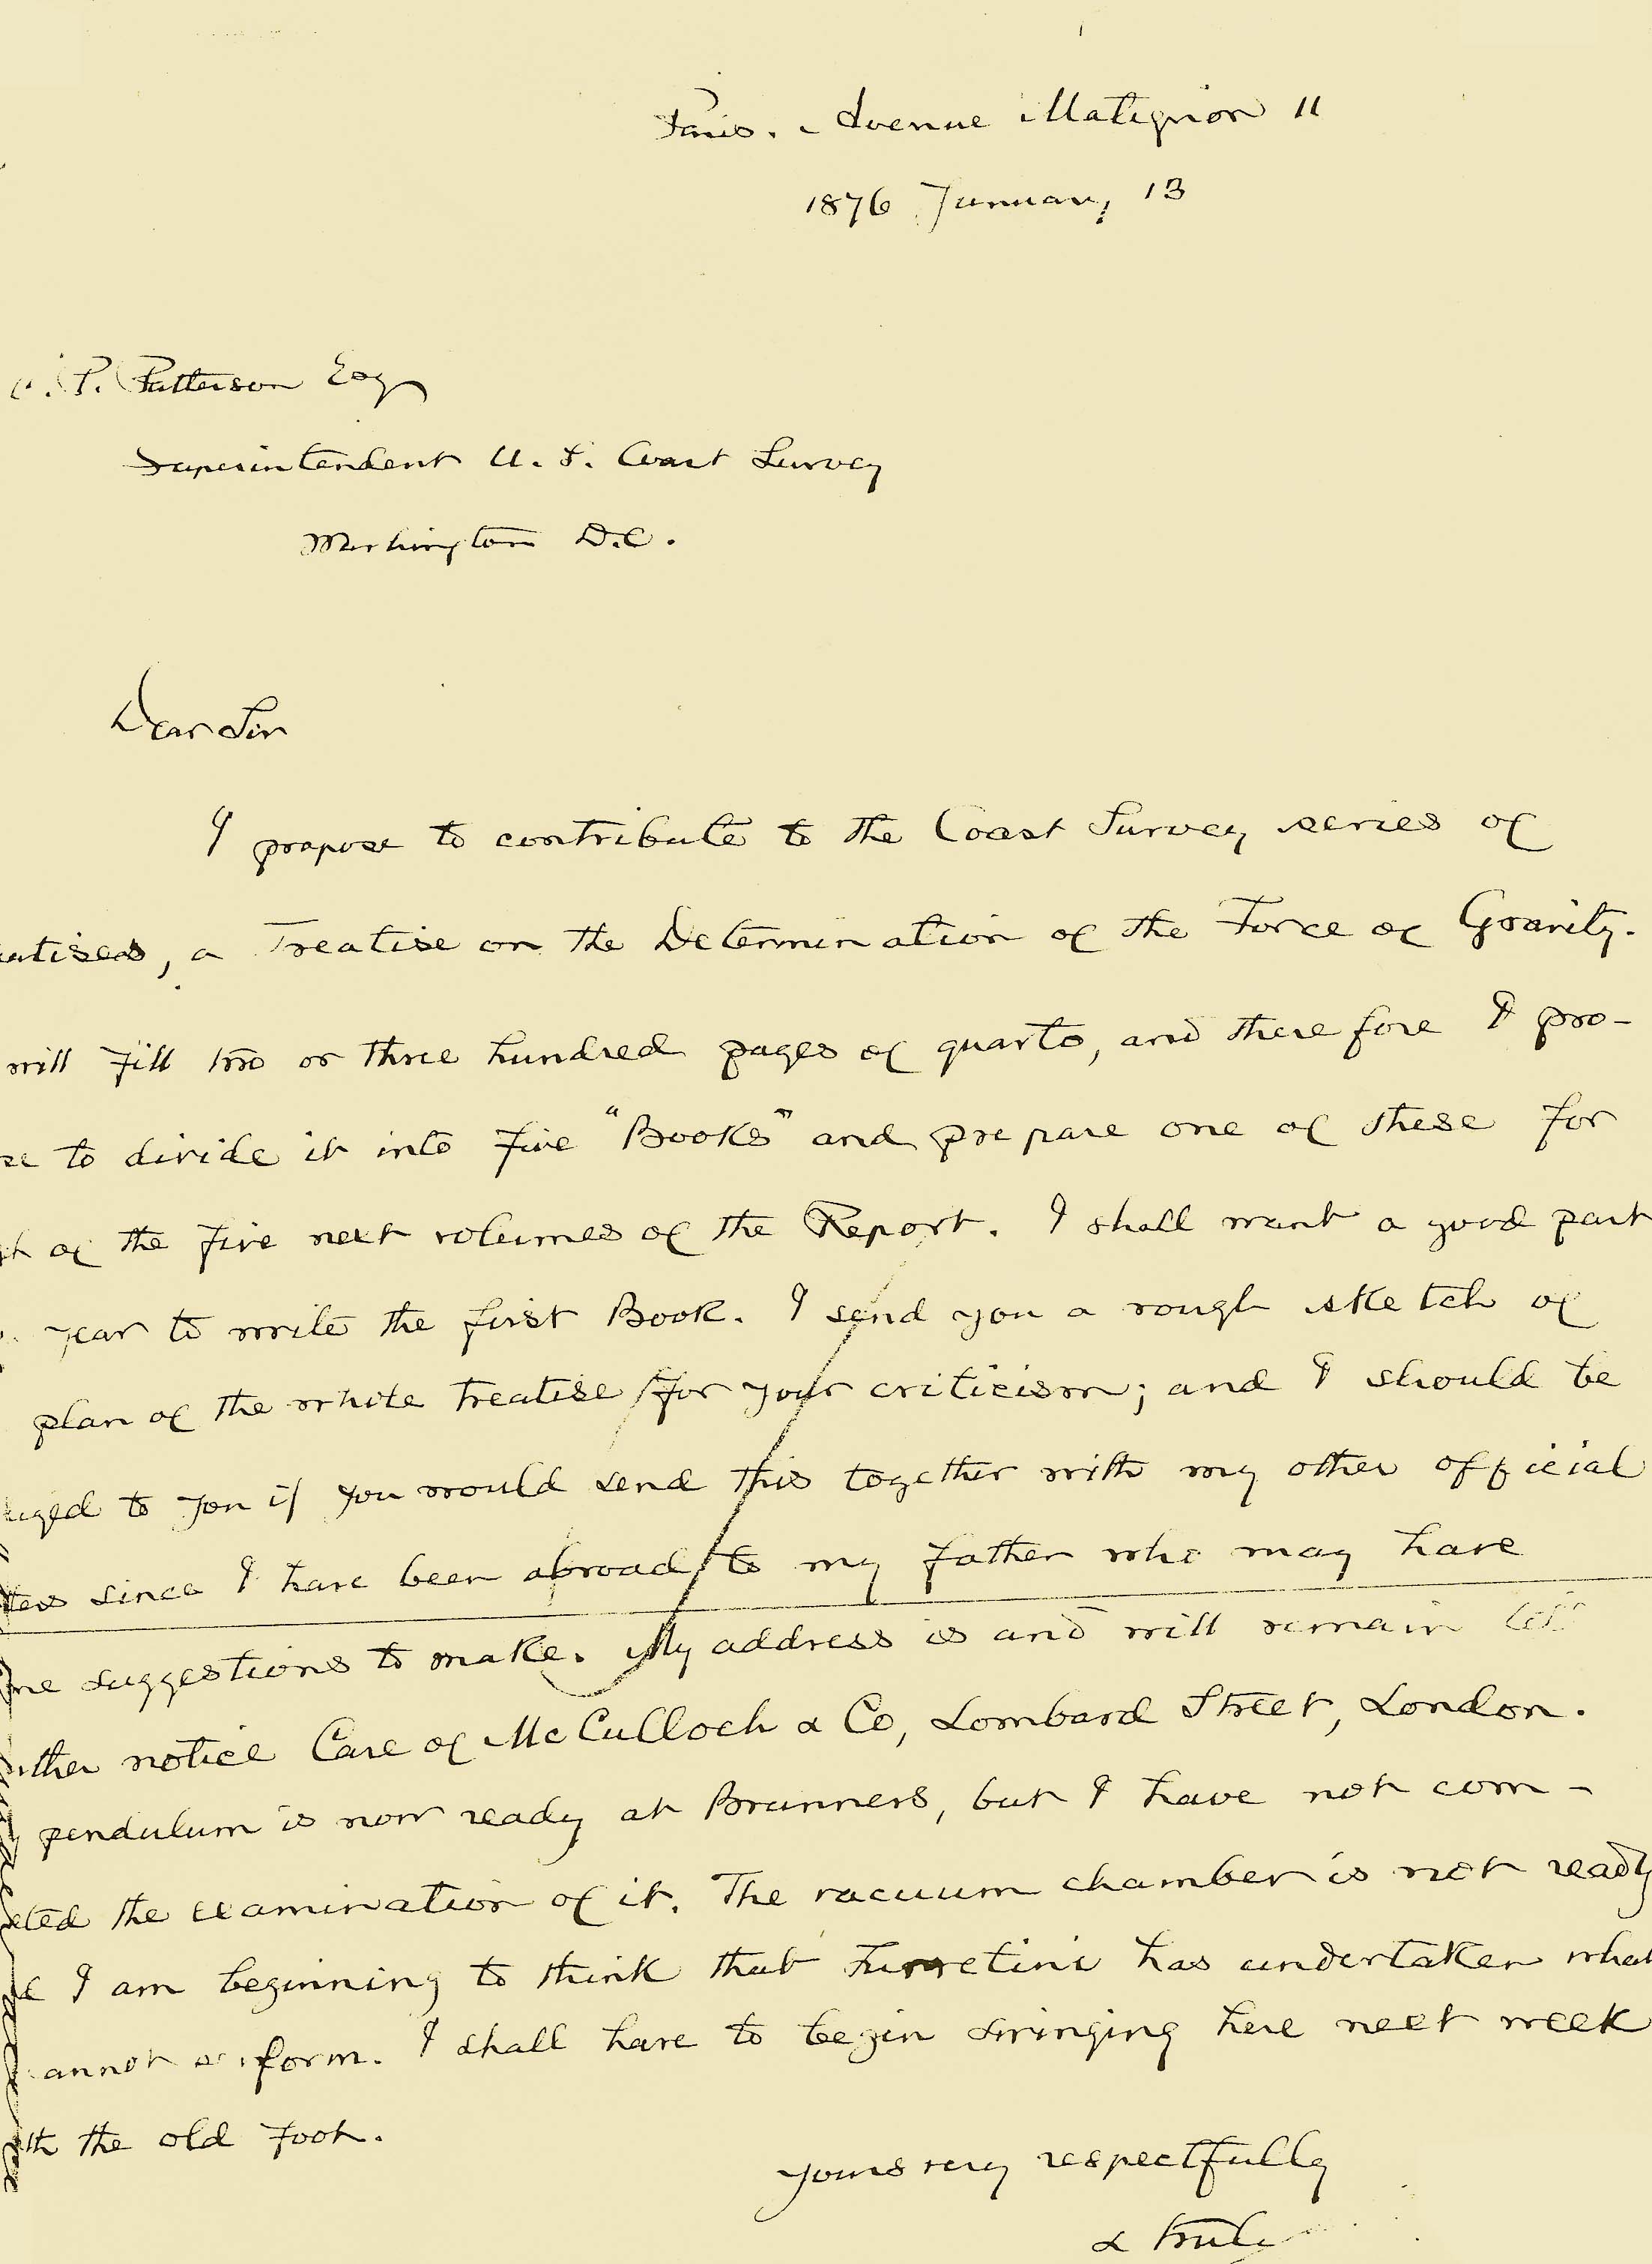 Paris. Avenue Matignon 11
1876 January 13
. P. Patterson Esq
Superintendent U. S. Coast Survey
Washington D.C.
Dear Sir
I propose to contribute to the Coast Survey series of
eatises, a Treatise on the Determination of the Force of Gravity.
will fill two or three hundred pages of quarto, and therefore I pro-
se to divide it into five "Books" and prepare one of these for
ch of the five next volumes of the Report. I shall want a good part
year to write the first Book. I send you a rough sketch of
plan of the whole treatise for your criticism; and I should be
iged to you if you would send this together with my other official
ters since I have been abroad to my father who may have
me suggestions to make. My address is and will remain
rther notice Care of McCulloch & Co, Lombard Street, London.
pendulum is now ready at Brunners, but I have not com-
eted the examination of it. The vacuum chamber is not ready
I am beginning to think that Turretini has undertaken what
cannot perform. I shall have to begin swinging here next week
ith the old foot.
Yours very respectfully
& truly